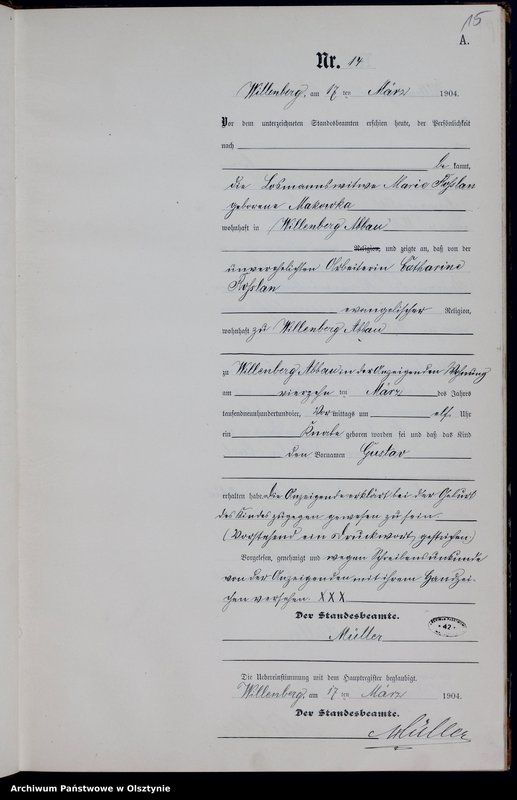 15
A.
Nr. 14
Willenberg, am 17 ten März 1904.
Vor dem unterzeichneten Standesbeamten erschien heute, der Persönlichkeit
nach
be kannt,
die Losmannswitwe Marie
geborene Makowka
wohnhaft in Willenberg Abbau
Religion, und zeigte an, daß von der
unverehelichten Arbeiterin Catharine
evangelischer Religion,
wohnhaft zu Willenberg Abbau
zu Willenberg Abbau in der Anzeigenden Wohnung
am vierzehn ten März des Jahres
tausendneunhundertundvier, Vor mittags um elf Uhr
ein Knabe geboren worden sei und daß das Kind
den Vornamen Gustav
erhalten habe. Die Anzeigende erklärt bei der Geburt
des Kindes zugegen gewesen zu sein.
(Vorstehend ein Druckwort gestrichen)
Vorgelesen, genehmigt und wegen Schreibensunkunde
von der Anzeigenden mit ihrem Handzei-
chen versehen. XXX
Der Standesbeamte.
Müller
42
Die Uebereinstimmung mit dem Hauptregister beglaubigt.
Willenberg, am 17 ten März 1904.
Der Standesbeamte.
Müller
Archiwum Państwowe w Olsztynie